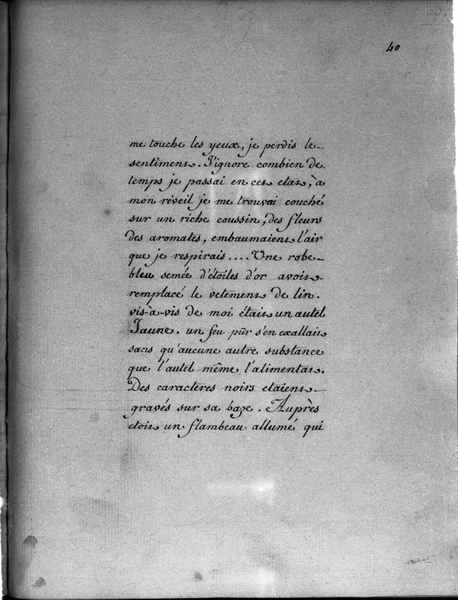 40
me touche les yeux, je perdis le
sentiment. J'ignore combien de
temps je passai en cet etat, à
mon réveil je me trouvai couché
sur un riche coussin, des fleurs
des aromates, embaumaient l'air
que je respirais .... Une robe
bleu semée d'étoiles d'or avoit
remplacé le vetement de lin.
vis-à-vis de moi était un autel
Jaune. un feu pûr s'en exallait
sans qu'aucune autre substance
que l'autel même l'alimentat.
Des caractères noirs etaient
gravés sur sa baze. Auprès
etoit un flambeau allumé qui